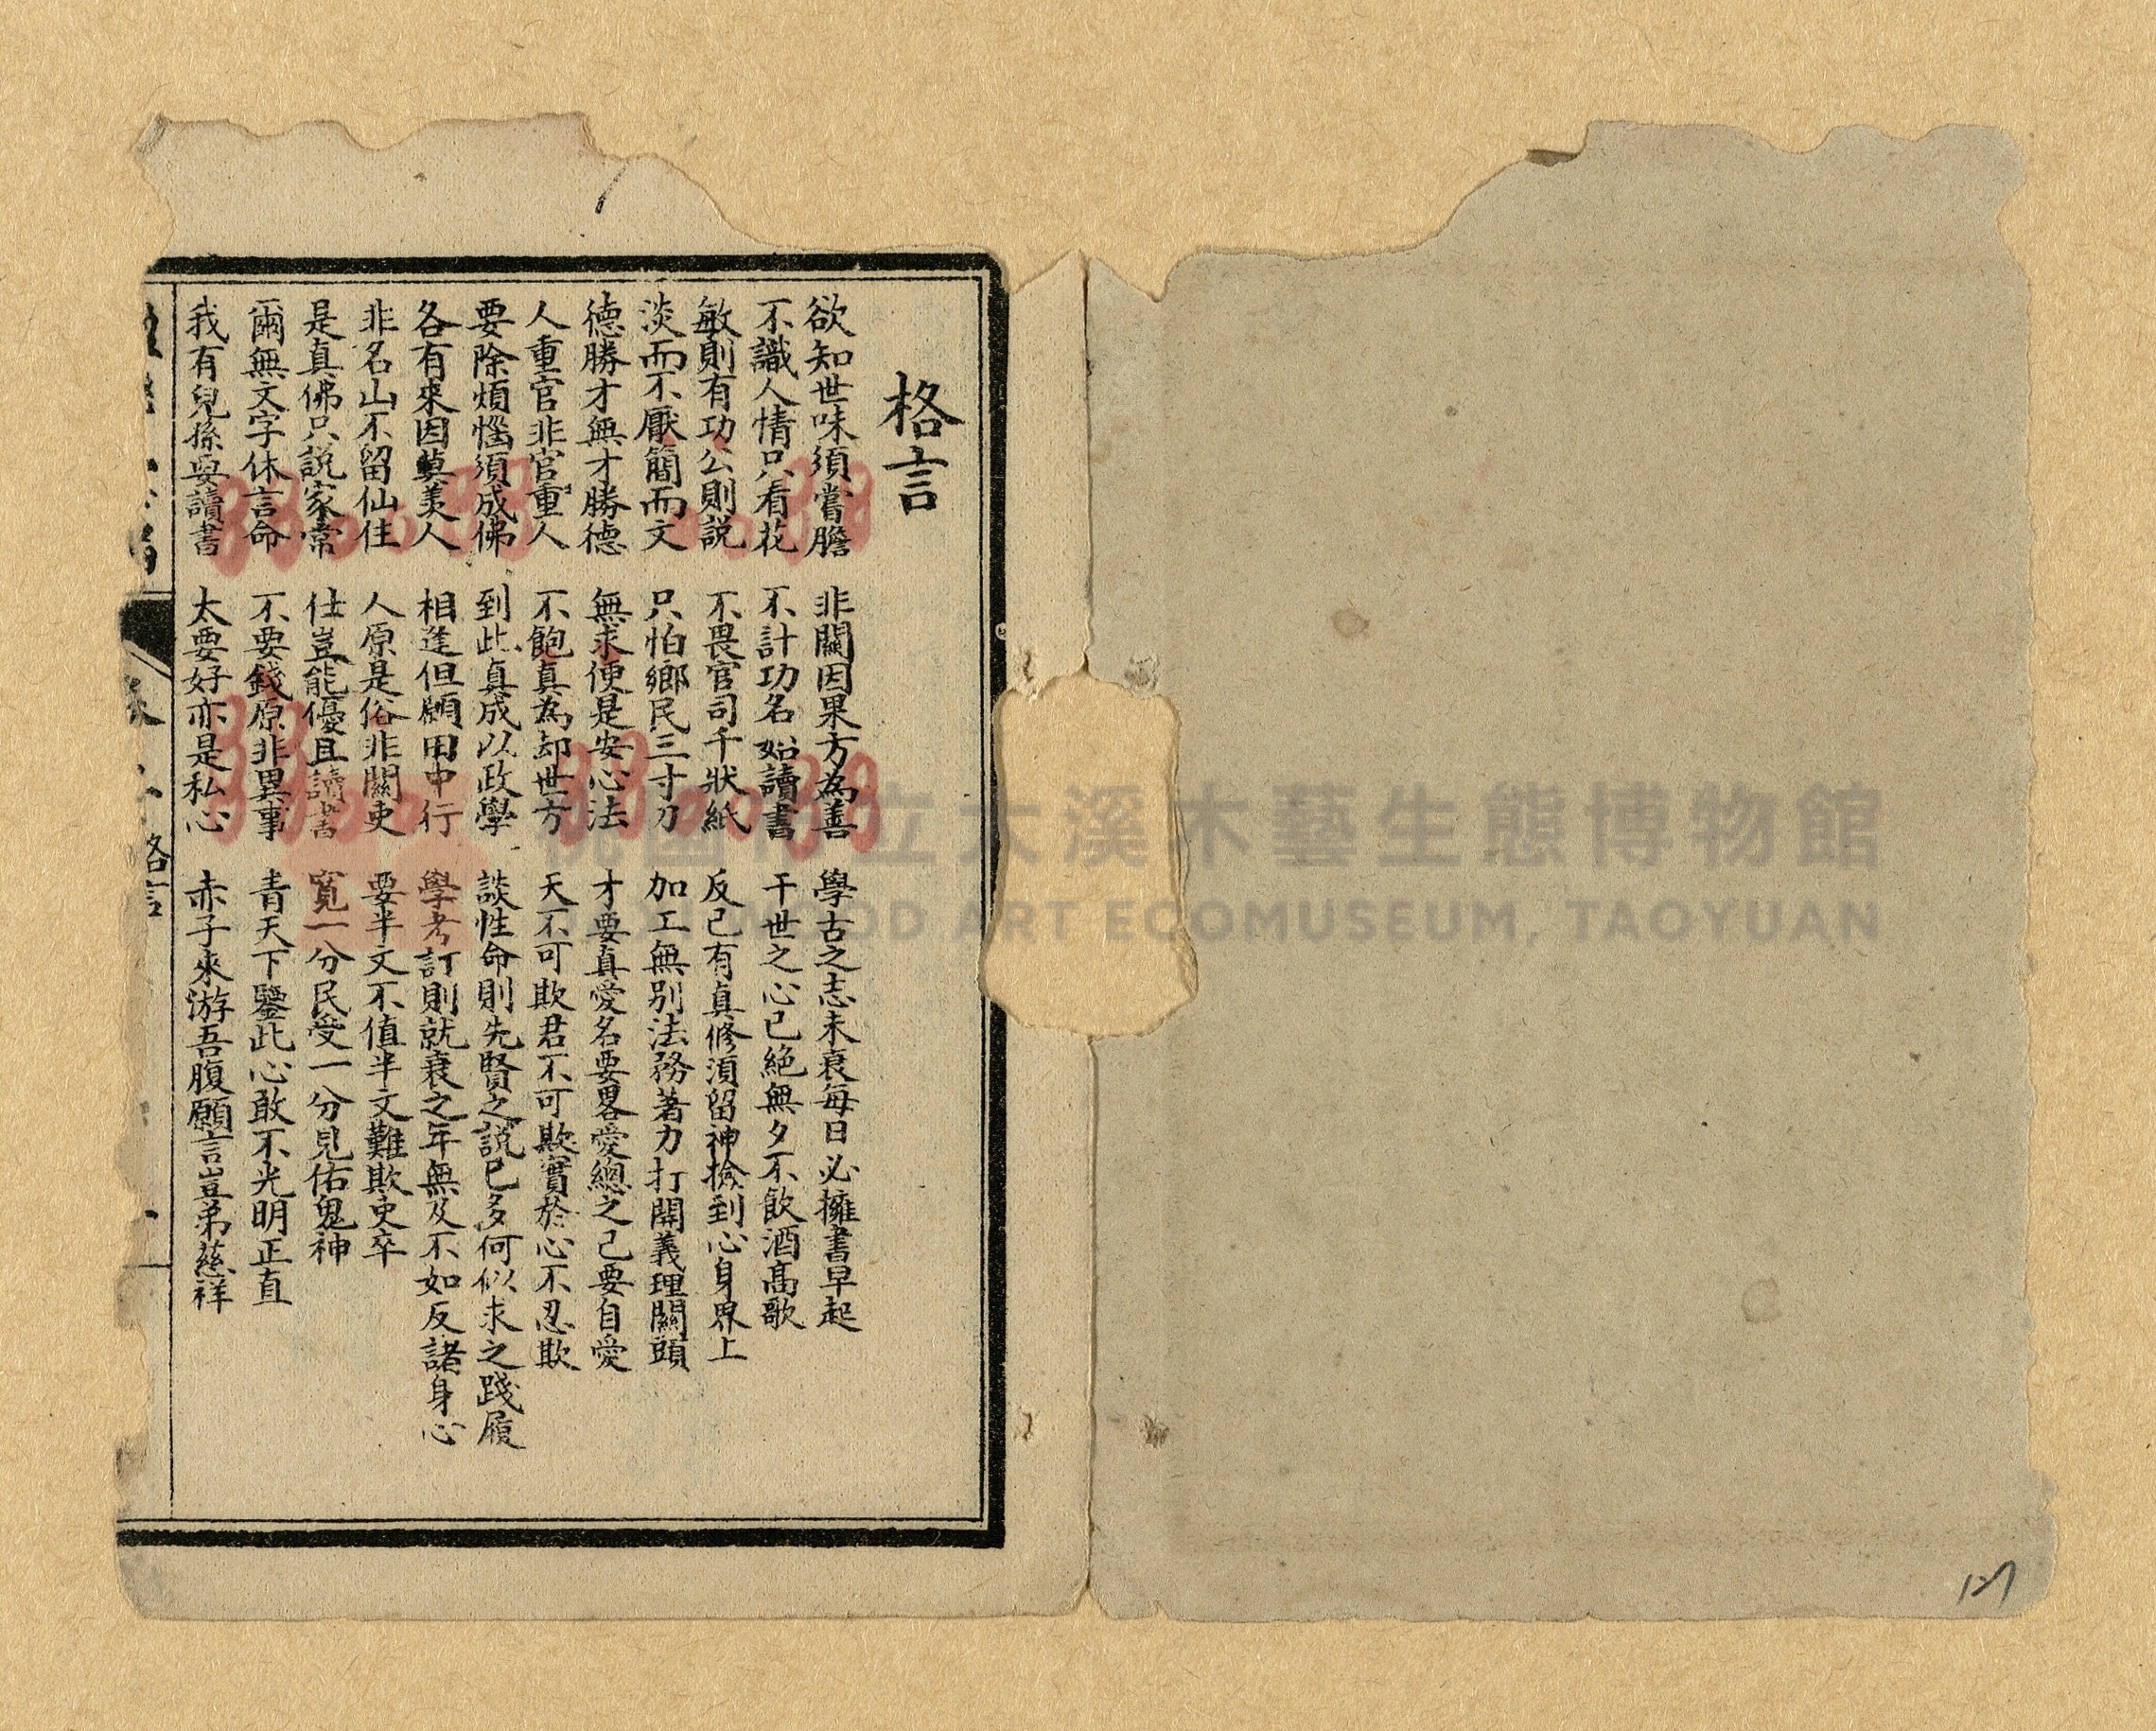 格言
欲知世味須嘗膽　非關因果方為善　學古之志未衰每日必擁書早起
不識人情只看花　不計功名始讀書　干世之心已絕無夕不飲酒高歌
敏則有功公則說　不畏官司千狀紙　反己有真修須留神撿到心身界上
淡而不厭簡而文　只怕鄉民三寸刀　加工無別法務著力打開義理關頭
德勝才無才勝德　無求便是安心法　才要真愛名要畧愛總之己要自愛
人重官非官重人　不飽真為却世方　天不可欺君不可欺實於心不忍欺
要除煩惱須成佛　到此真成以政學　談性命則先賢之說已多何似求之踐履
各有來因莫羡人　相逢但願田中行　學考訂則就衰之年無及不如反諸身心
非名山不留仙住　人原是俗非關吏　要半文不值半文難欺吏卒
是真佛只說家常　仕豈能優且讀書　寬一分民受一分見佑鬼神
爾無文字休言命　不要錢原非異事　青天下鑒此心敢不光明正直
我有兒孫要讀書　太要好亦是私心　赤子來游吾腹願言豈弟慈祥
格言
桃園市立大溪木藝生態博物館
WOOD ART ECOMUSEUM, TAOYUAN